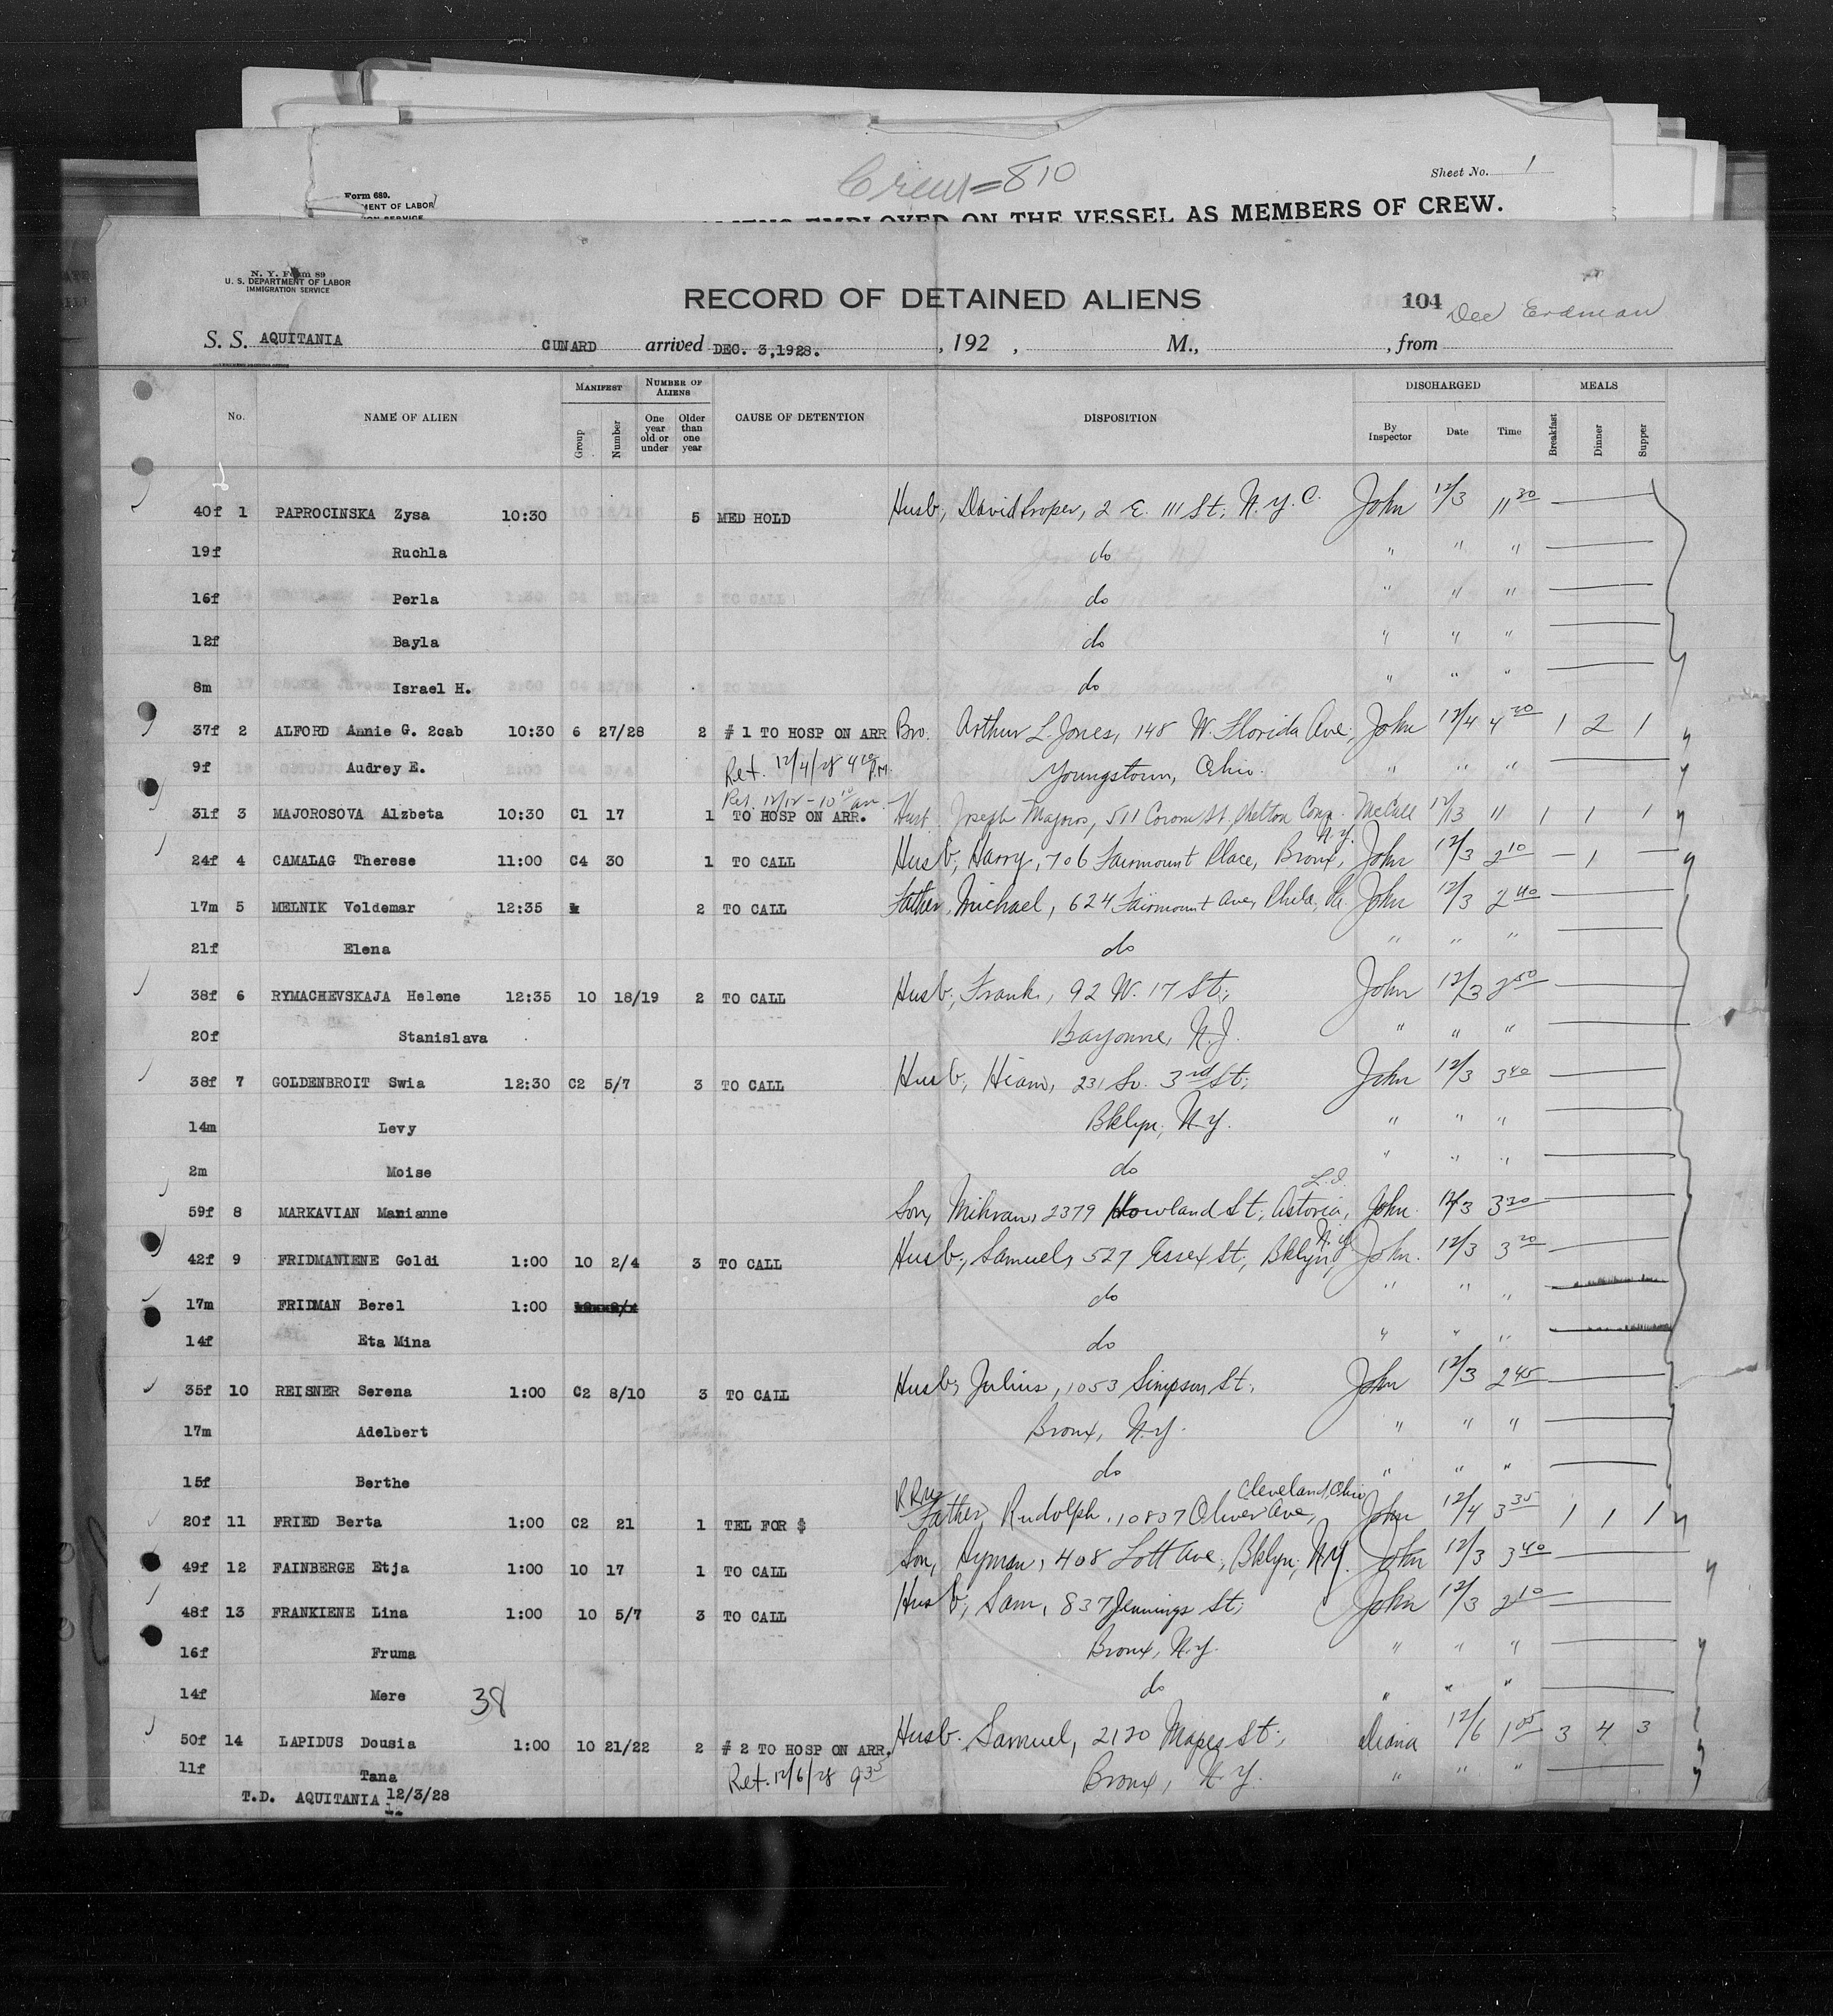 Crew = 810
Sheet No. 1
Form 689.
MENT OF LABOR
ON THE VESSEL AS MEMBERS OF CREW.
N. Y. Form 89
U. S. DEPARTMENT OF LABOR
IMMIGRATION SERVICE
RECORD OF DETAINED ALIENS
104 Dec Erdman
S. S. AQUITANIA CUNARD arrived DEC. 3,1928. , 192 , M., , from
MANIFEST NUMBER OF ALIENS DISCHARGED MEALS
No. NAME OF ALIEN Group Number One year old or under Older than one year CAUSE OF DETENTION DISPOSITION By Inspector Date Time Breakfast Dinner Supper
40f 1 PAPROCINSKA Zysa 10:30 5 MED HOLD Husb, David Proper, 2 E. 111 St, N.Y.C. John 12/3 11 30
19f Ruchla do " " "
16f Perla do " " "
12f Bayla do " " "
8m Israel H. do " " "
37f 2 ALFORD Annie G. 2cab 10:30 6 27/28 2 # 1 TO HOSP ON ARR Bro. Arthur L. Jones, 148 W. Florida Ave, John 12/4 4 20 1 2 1
9f Audrey E. Ret. 12/4/28 4 20 P.M. Youngstown, Ohio. " " "
Ret. 12/12 - 10 10 am.
31f 3 MAJOROSOVA Alzbeta 10:30 C1 17 1 TO HOSP ON ARR. Husb. Joseph Majoros, 511 Corom St, Shelton Conn. McCall 12/13 11 1 1 1
24f 4 CAMALAG Therese 11:00 C4 30 1 TO CALL Husb, Harry, 706 Fairmount Place, Bronx, N.Y. John 12/3 2 10 — 1 —
17m 5 MELNIK Voldemar 12:35 2 TO CALL Father, Michael, 624 Fairmount Ave, Phila, Pa. John 12/3 2 40
21f Elena do " " "
38f 6 RYMACHEVSKAJA Helene 12:35 10 18/19 2 TO CALL Husb, Frank, 92 W. 17 St; John 12/3 2 50
20f Stanislava Bayonne, N.J. " " "
38f 7 GOLDENBROIT Swia 12:30 C2 5/7 3 TO CALL Husb, Hiam, 231 So. 3rd St; John 12/3 3 40
14m Levy Bklyn, N.Y. " " "
2m Moise do " " "
59f 8 MARKAVIAN Marianne Son, Mihran, 2379 Howland St, Astoria, L.I. John 12/3 3 20
42f 9 FRIDMANIENE Goldi 1:00 10 2/4 3 TO CALL Husb, Samuel, 527 Essex St, Bklyn, N.Y. John 12/3 3 20
17m FRIDMAN Berel 1:00 do " " "
14f Eta Mina do " " "
35f 10 REISNER Serena 1:00 C2 8/10 3 TO CALL Husb, Julius, 1053 Simpson St, John 12/3 2 45
17m Adelbert Bronx, N.Y. " " "
15f Berthe do " " "
20f 11 FRIED Berta 1:00 C2 21 1 TEL FOR $ Father, Rudolph, 10837 Oliver Ave, Cleveland, Ohio John 12/4 3 35 1 1 1
49f 12 FAINBERGE Etja 1:00 10 17 1 TO CALL Son, Hyman, 408 Lott Ave, Bklyn, N.Y. John 12/3 3 40
48f 13 FRANKIENE Lina 1:00 10 5/7 3 TO CALL Husb, Sam, 837 Jennings St; John 12/3 2 10
16f Fruma Bronx, N.Y. " " "
14f Mere 38 do " " "
50f 14 LAPIDUS Dousia 1:00 10 21/22 2 # 2 TO HOSP ON ARR. Husb. Samuel, 2120 Mapes St; Diana 12/6 1 05 3 4 3
11f Tana Ret. 12/6/28 9 35 Bronx, N.Y. " " "
T.D. AQUITANIA 12/3/28